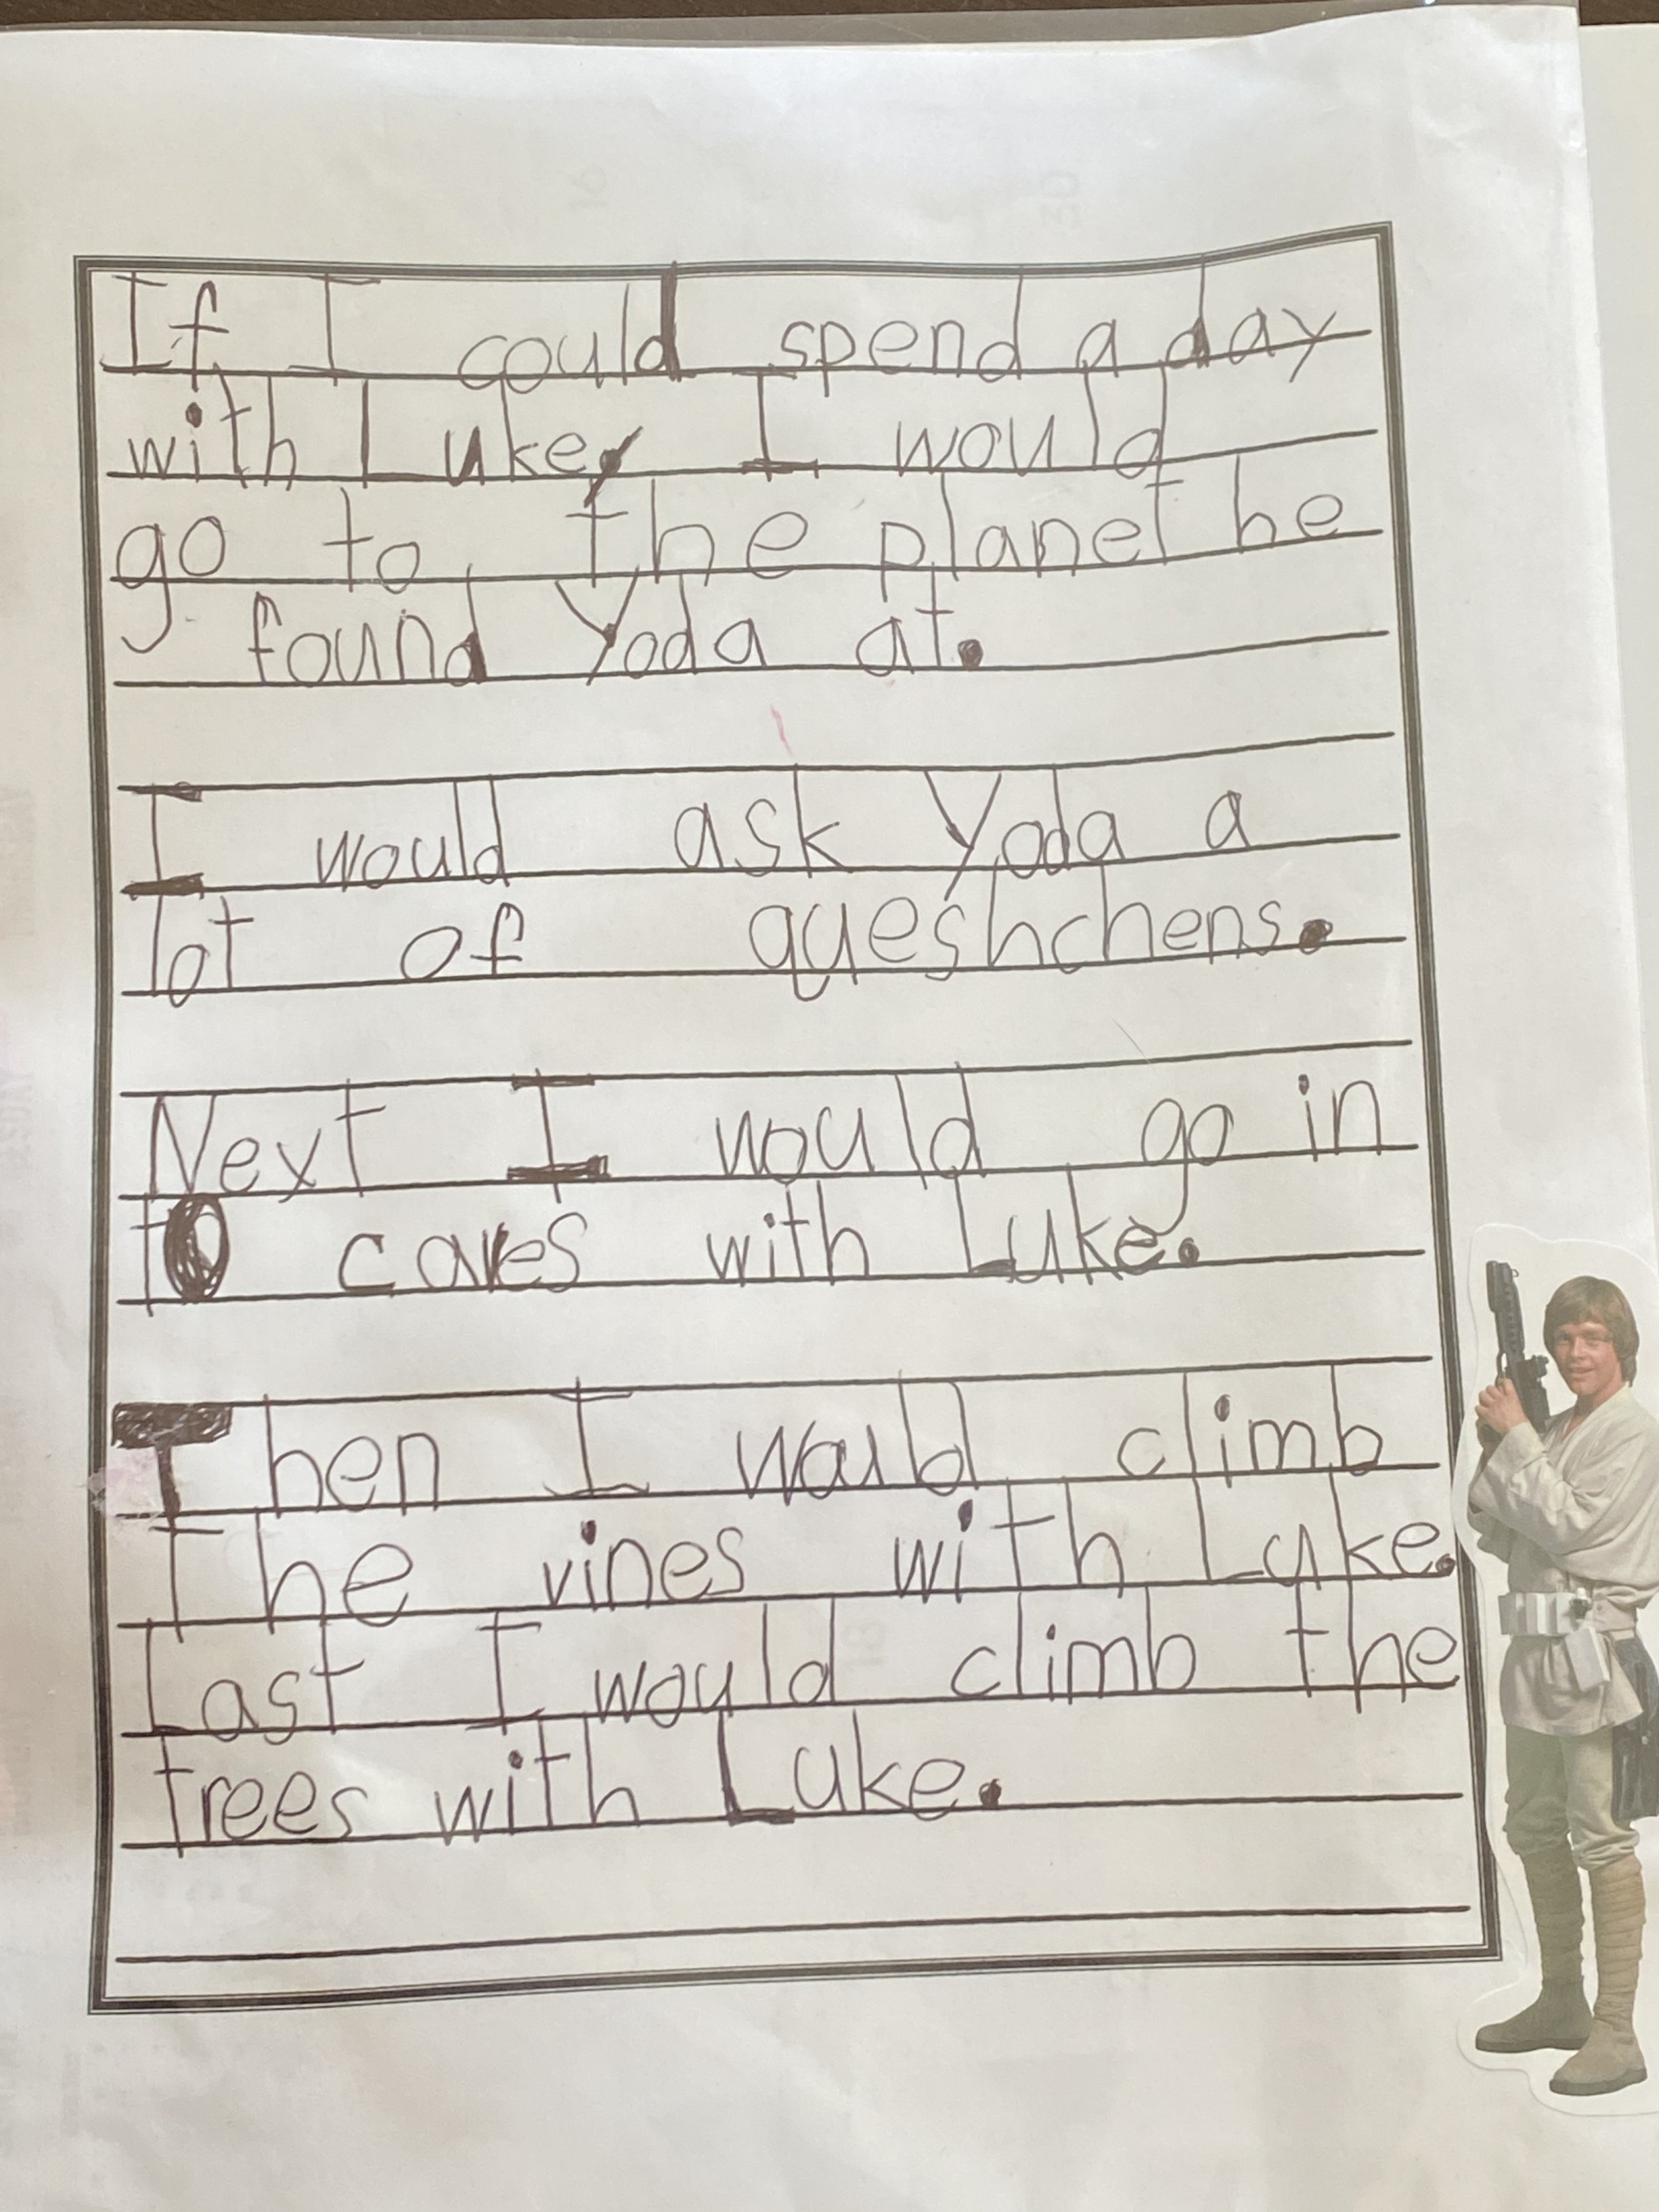 If I could spend a day
with Luke, I would
go to the planet he
found Yoda at.
I would ask Yoda a
lot of queshchens.
Next I would go in
to caves with Luke.
Then I would climb
the vines with Luke.
Last I would climb the
trees with Luke.